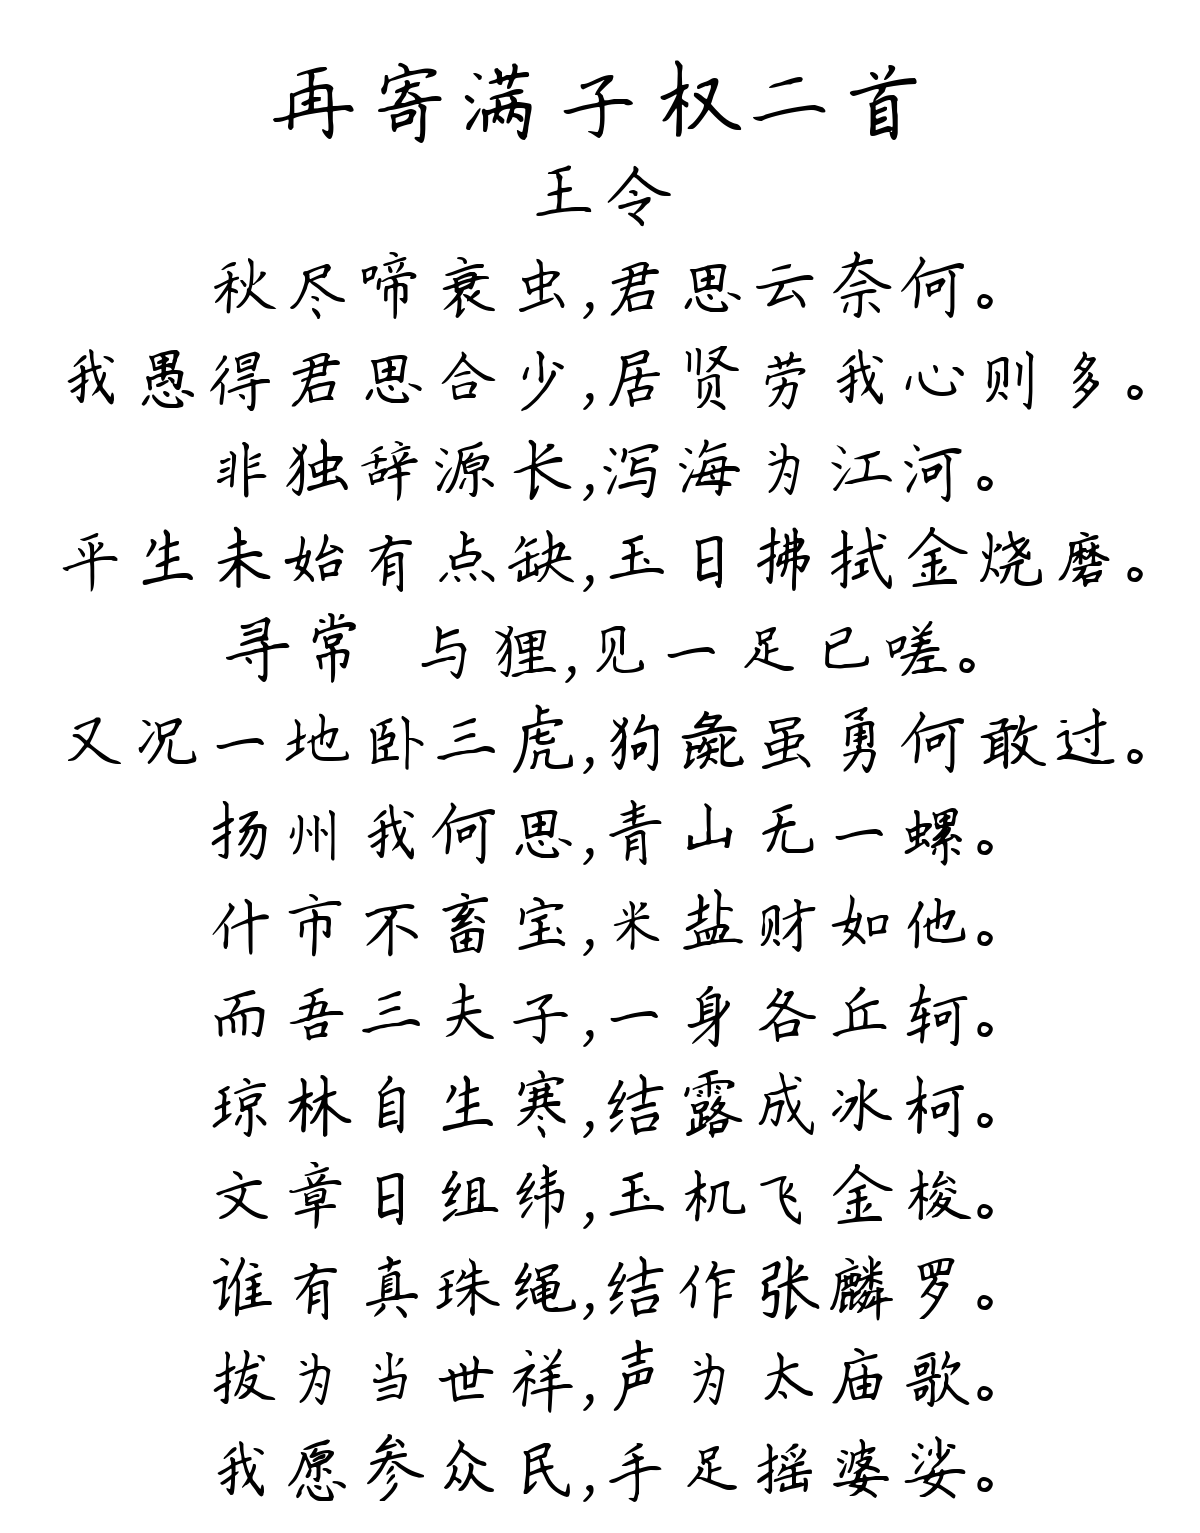 再寄满子权二首
王令
秋尽啼衰虫,君思云奈何。
我愚得君思合少,居贤劳我心则多。
非独辞源长,泻海为江河。
平生未始有点缺,玉日拂拭金烧磨。
寻常 与狸,见一足已嗟。
又况一地卧三虎,狗彘虽勇何敢过。
扬州我何思,青山无一螺。
什市不畜宝,米盐财如他。
而吾三夫子,一身各丘轲。
琼林自生寒,结露成冰柯。
文章日组纬,玉机飞金梭。
谁有真珠绳,结作张麟罗。
拔为当世祥,声为太庙歌。
我愿参众民,手足摇婆娑。